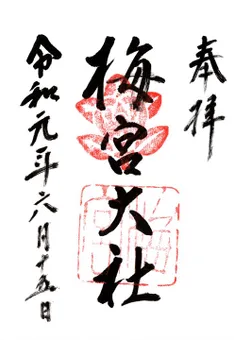 奉拝
梅宮大社
令和元年六月十五日